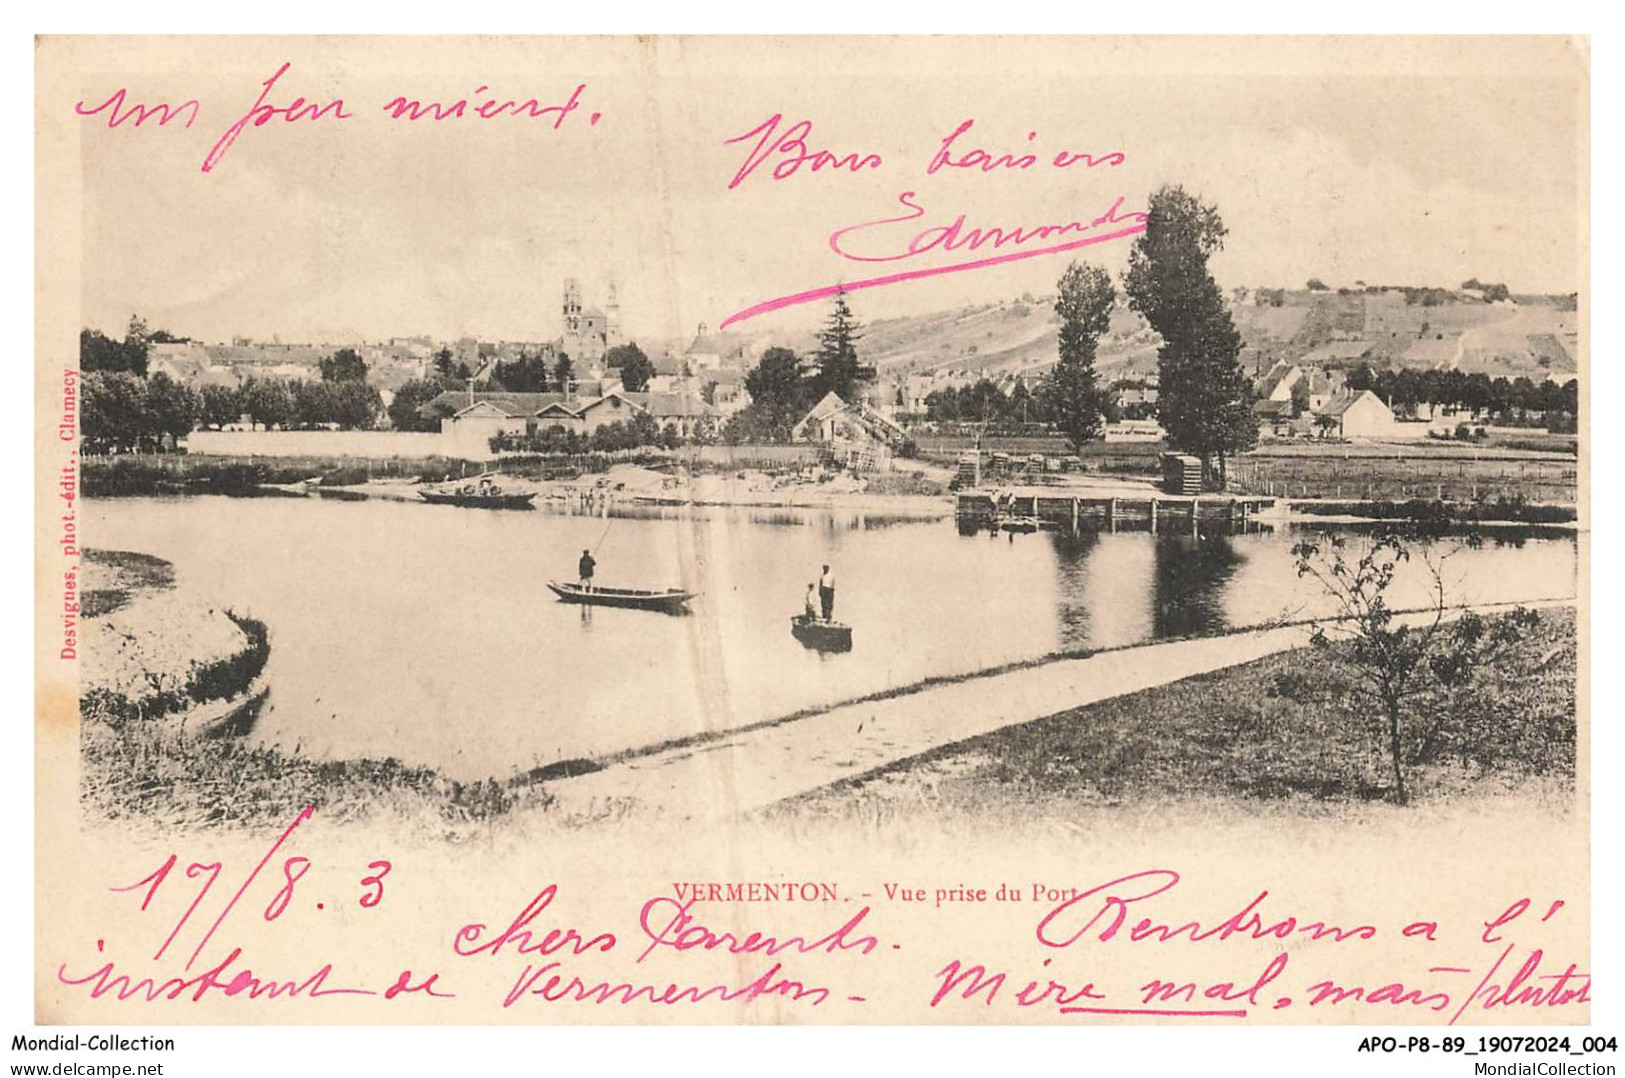 un peu mieux.
Bons baisers
Edmond
Desvignes, phot.-édit., Clamecy
VERMENTON. - Vue prise du Port
17/8.3
chers Parents. Rentrons a l'
instant de Vermenton - Mère mal, mais plutot
Mondial-Collection
delcampe.net
APO-P8-89_19072024_004
MondialCollection